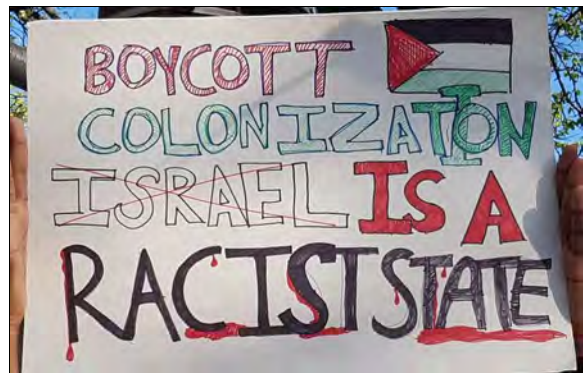 BOYCOTT
COLONIZATION
ISRAEL IS A
RACIST STATE